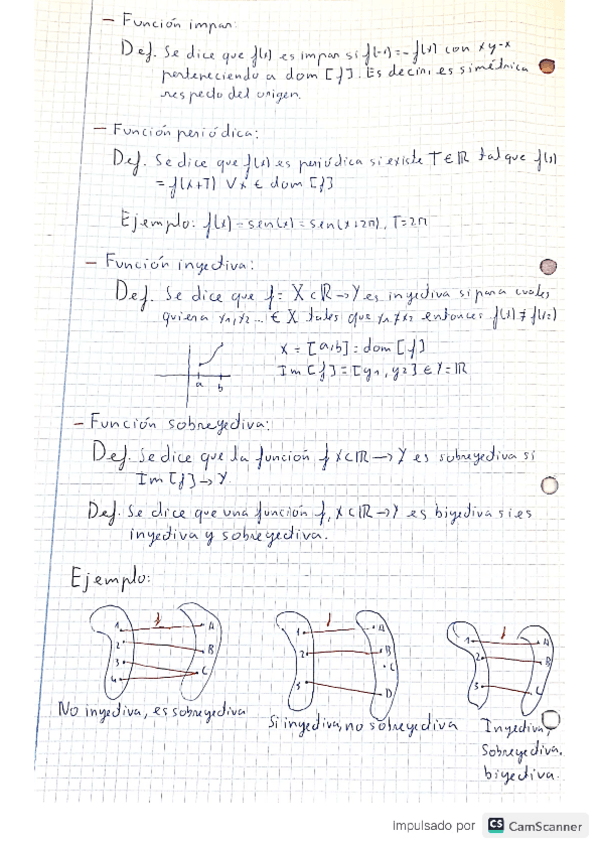 - Función impar:
Def. Se dice que f(x) es impar si f(-x)=-f(x) con x y -x
perteneciendo a dom [f]. Es decir, es simétrica
respecto del origen.
- Función periódica:
Def. Se dice que f(x) es periódica si existe T∈ℝ tal que f(x)
= f(x+T) ∀x ∈ dom [f]
Ejemplo: f(x) = sen(x) = sen(x+2π), T=2π
- Función inyectiva:
Def. Se dice que f= X⊂ℝ→Y es inyectiva si para cuales
quiera x₁,x₂... ∈ X tales que x₁≠x₂ entonces f(x₁)≠f(x₂)
x=[a,b]=dom[f]
Im[f]=[y₁,y₂]∈Y=ℝ
a b
- Función sobreyectiva:
Def. Se dice que la función f X⊂ℝ→Y es sobreyectiva si
Im[f]→Y
Def. Se dice que una función f, X⊂ℝ→Y es biyectiva si es
inyectiva y sobreyectiva.
Ejemplo:
f
1 A
2 B
3 C
4
No inyectiva, es sobreyectiva
f
1 A
2 B
C
3 D
Si inyectiva, no sobreyectiva
f
1 A
2 B
3 C
Inyectiva,
Sobreyectiva,
biyectiva.
Impulsado por CS CamScanner